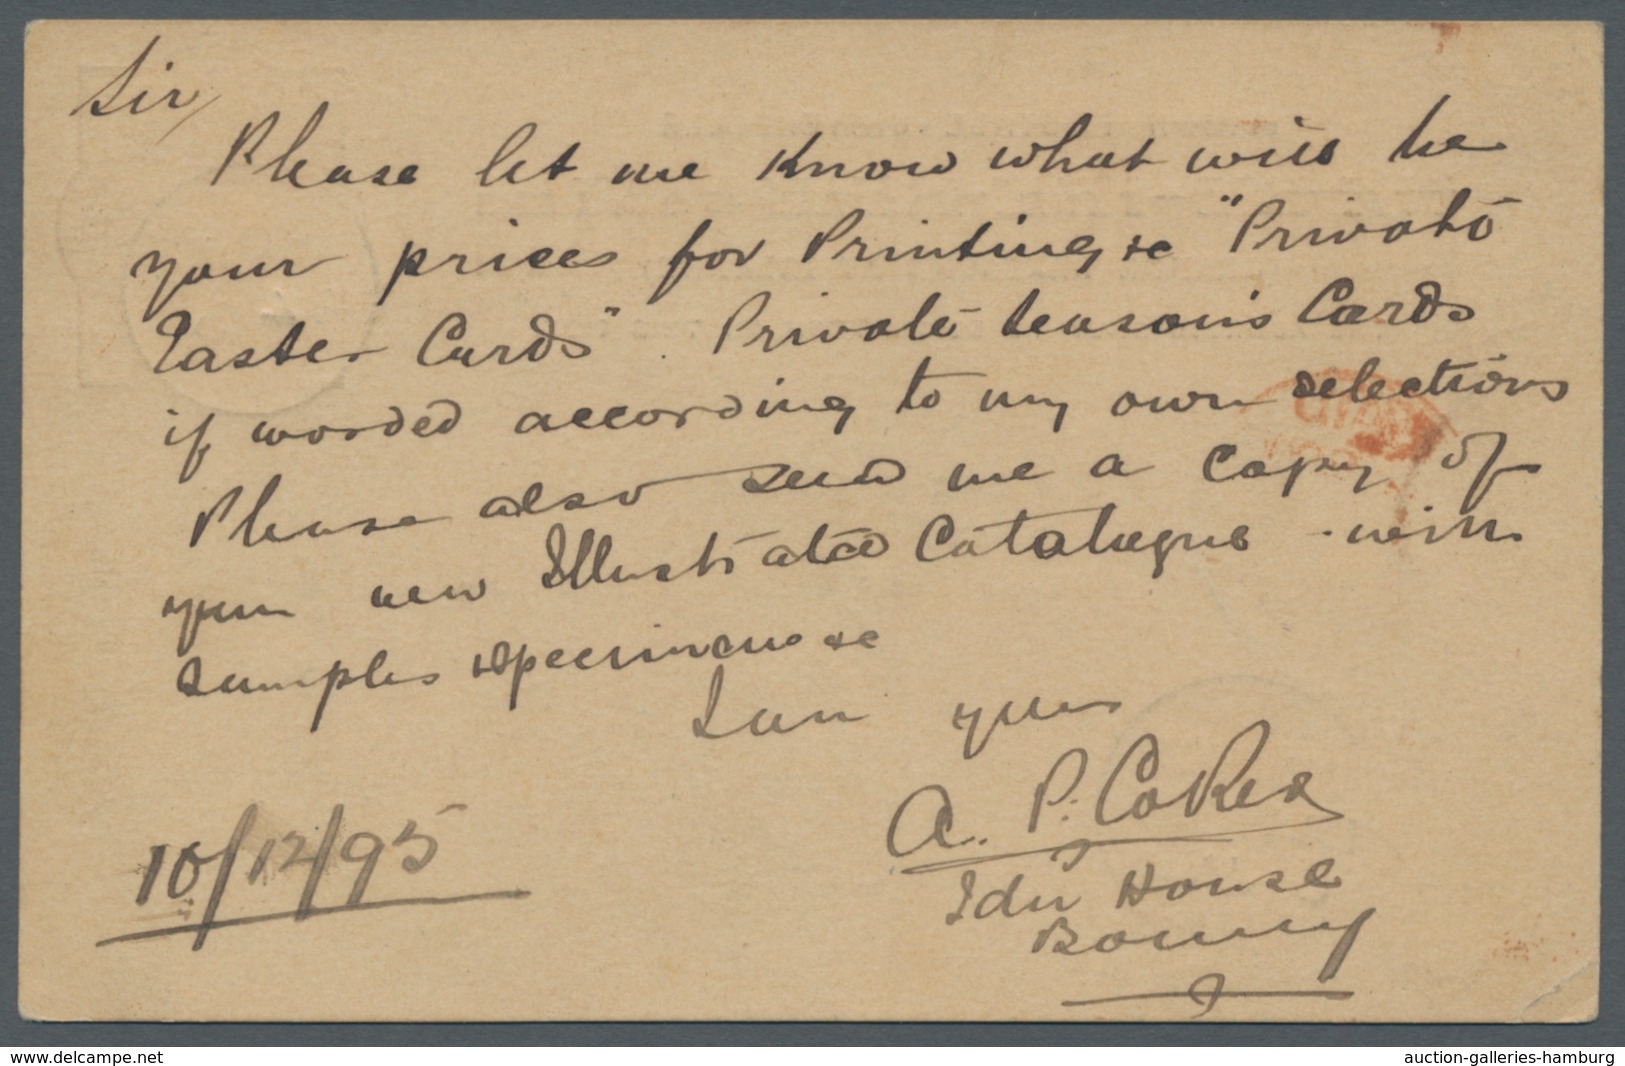 Sir,
Please let me know what will be
your prices for Printing &c "Private
Easter Cards". Private Seasons Cards
if worded according to my own selections
Please also send me a copy of
your new Illustrated Catalogue with
samples specimens &c
I am yours
A. P. Coker
House
Bonny
10/12/95
www.delcampe.net
auction-galleries-hamburg